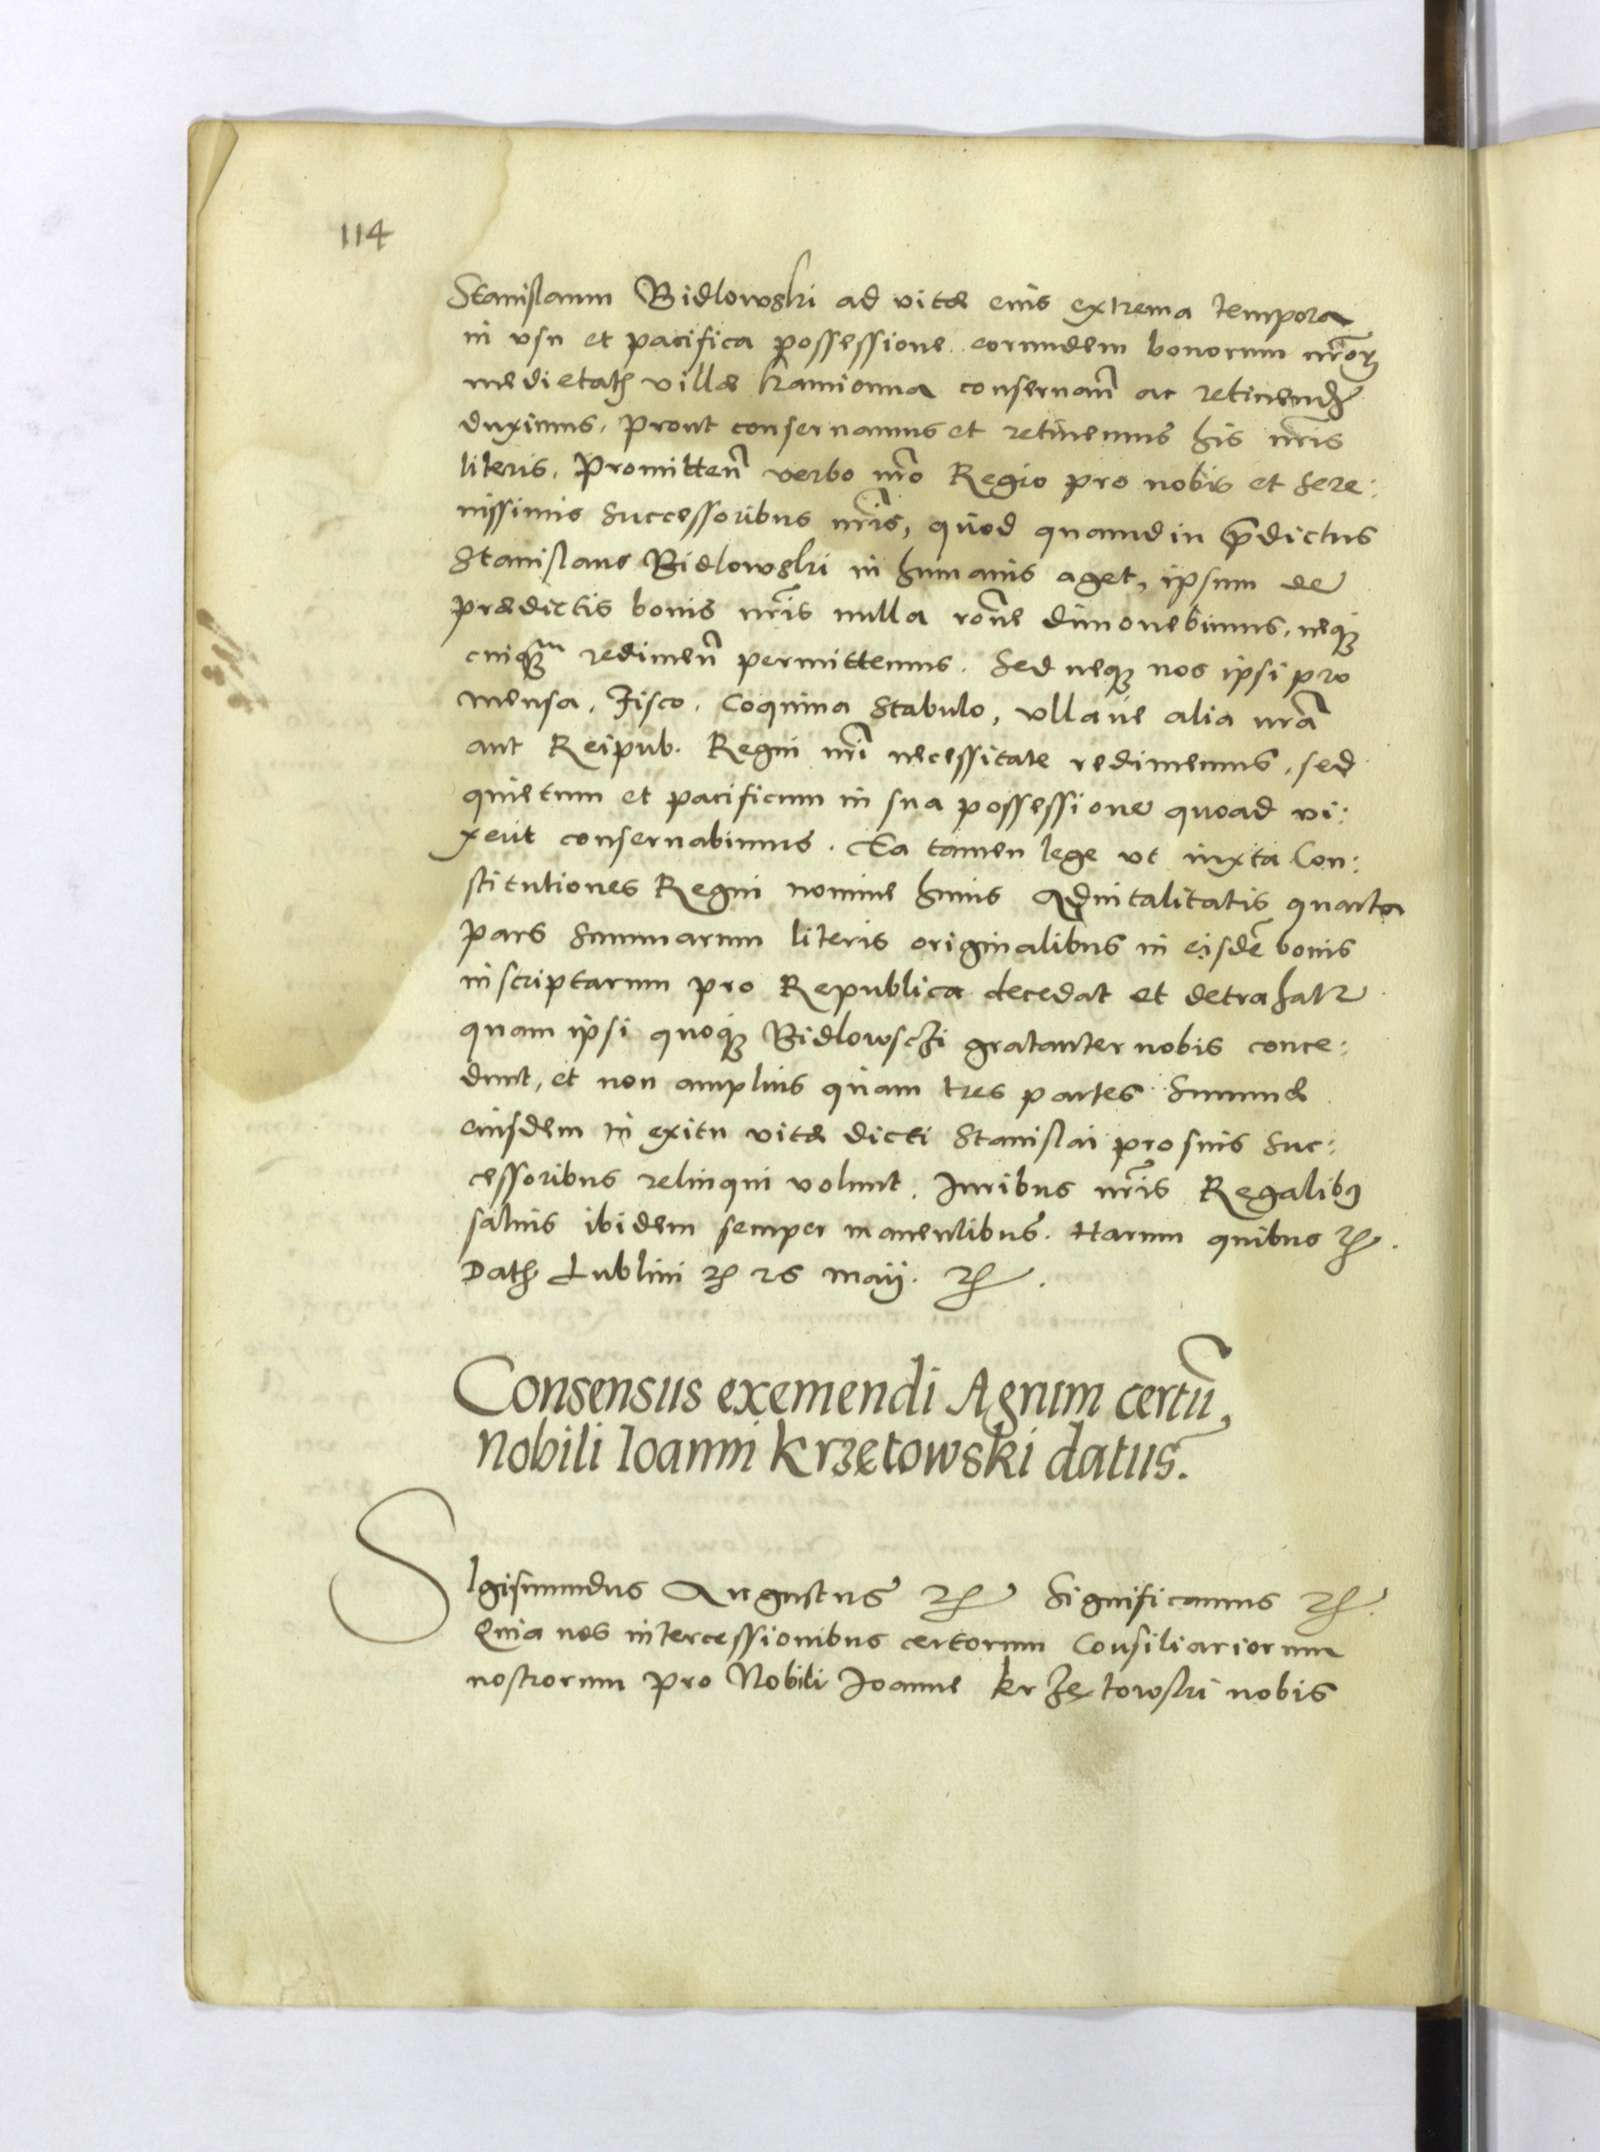 114
Stanislaum Bidlowski ad vitæ eius extrema tempora
in vsu et pacifica possessione eorundem bonorum nr̃orꝫ
medietatꝫ villæ Kamionna conseruan̄ ac retinendꝫ
duximus, Prout conseruamus et retinemus his nr̃is
literis. Promitten̄ verbo nr̃o Regio pro nobis et Sere:
nissimis Successoribus nr̃is, quod quamdiu p̃dictus
Stanislaus Bidlowski in humanis aget, ipsum de
prædictis bonis nr̃is nulla rõne dimouebimus, neqꝫ
cuiqꝫᵐ redimen̄ permittemus. Sed neqꝫ nos ipsi pro
mensa, Fisco, Coquina Stabulo, vllaue alia nr̃a
aut Reipub. Regni nr̃i necessitate redimemus, sed
quietum et pacificum in sua possessione quoad vi:
xerit conseruabimus. Ea tamen lege vt iuxta Con:
stitutiones Regni nomine huius Aduitalitatis quarta
pars Summarum literis originalibus in eisdē bonis
inscriptarum pro Republica decedat et detrahatr
quam ipsi quoqꝫ Bidlowsczi gratanter nobis conce:
dunt, et non amplius quam tres partes Summæ
eiusdem in exitu vitæ dicti Stanislai pro suis Suc:
cessoribus relinqui volunt. Iuribus nr̃is Regalibꝯ
saluis ibidem semper manentibus. Harum quibus ꝛc.
Datꝫ Lublini ꝛc 26 maij. ꝛc.
Consensus exemendi Agrum certū,
nobili Ioanni Krzętowski datus.
SIgismundus Augustus ꝛc Significamus ꝛc.
Quia nos intercessionibus certorum Consiliariorum
nostrorum pro Nobili Joanne Krzętowski nobis